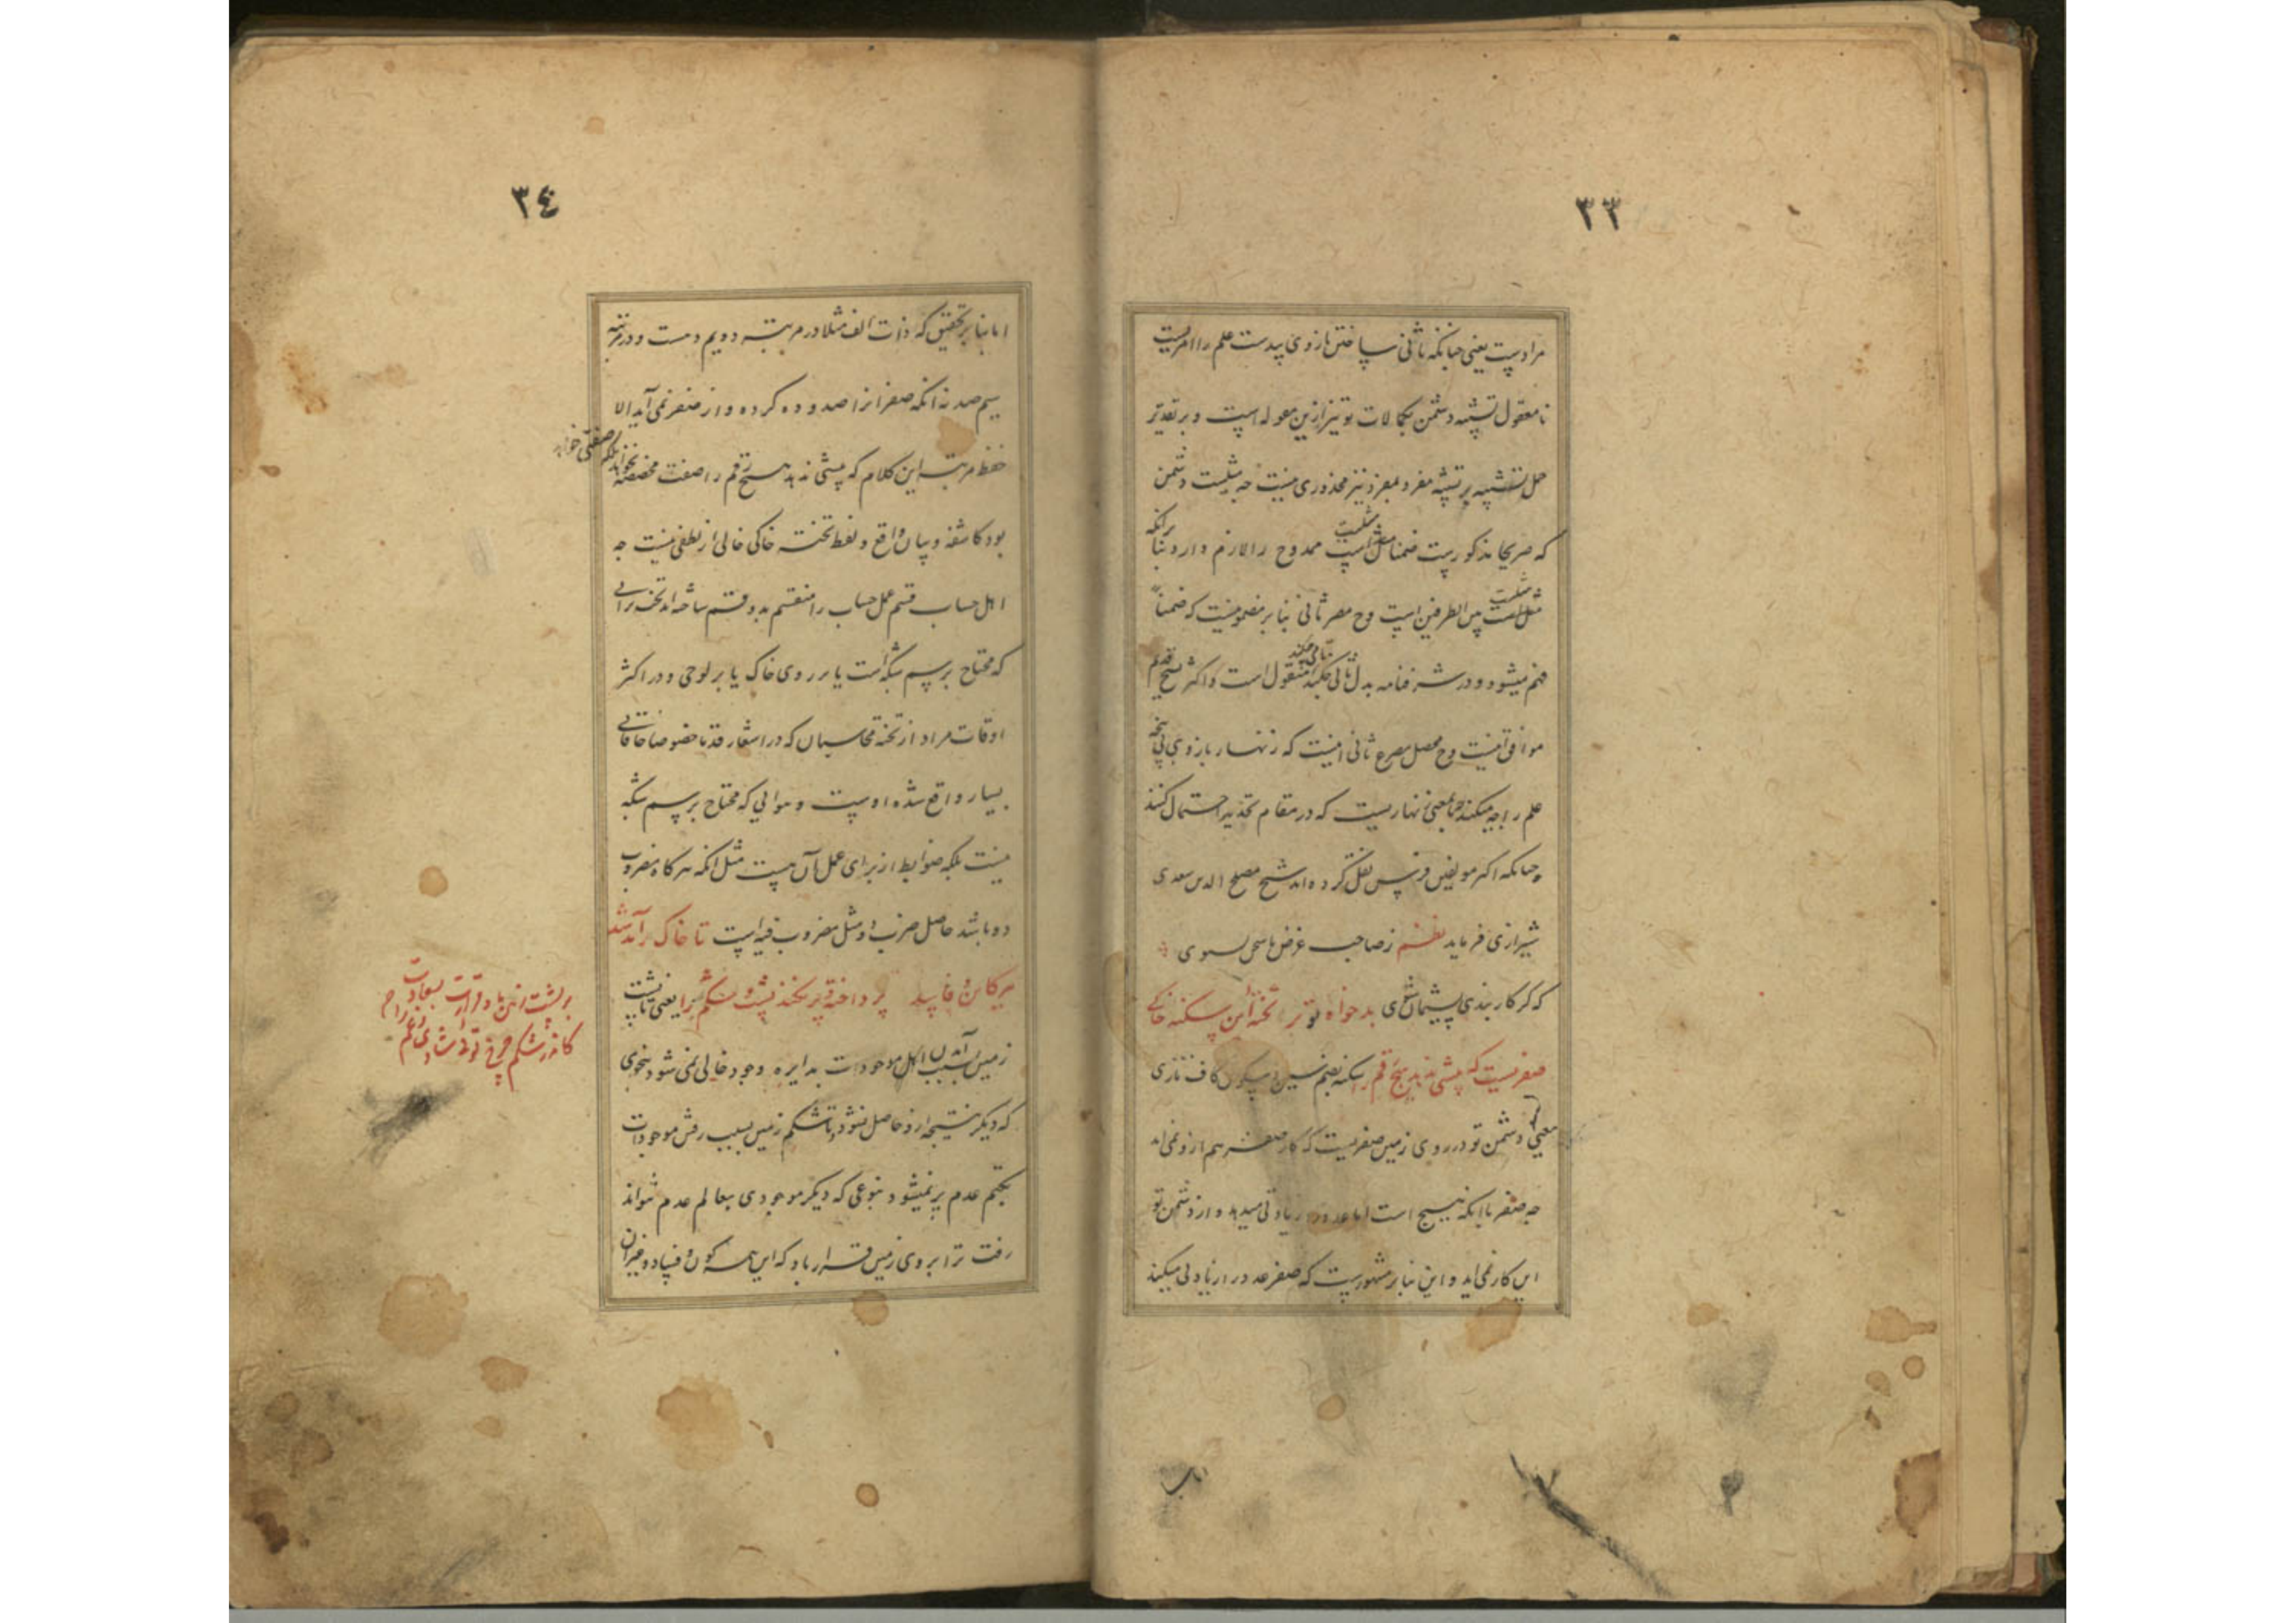 ۳۳
مرادست یعنی چنانکه ثانی ساختن بازوی بیدست علم را امریست
نامعقول تشبیه دشمن بکمالات تو نیز ازین مقوله است و بر تقدیر
حمل تشبیه بر تشبیه مفرد بمفرد نیز محذوری نیست چه مثلیت دشمن
که صریحا مذکورست ضمنا مثلیت ممدوح را لازم دارد بنا برانکه
مثلیت بین الطرفین است و ح مصرع ثانی بنا بر مضمونیست که ضمناً
فهم میشود و در شرفنامه بدل ثانی منقول است و اکثر نسخ قدیم
موافق آنیست و ح محصل مصرع ثانی اینست که زنهار بازوی بی پنجه
علم را چه میکند چه بمعنی زنهاریست که در مقام تحذیر استعمال کنند
چنانکه اکثر مولفین فرس نقل کرده اند شیخ مصلح الدین سعدی
شیرازی فرماید نظم ز صاحب غرض تا سخن نشنوی
که گر کار بندی پشیمان شوی بدخواه تو بر تختهٔ این سکنه خاکی
صفریست که پیشی ندهد هیچ رقم را سکنه بضم سین و سکون کاف تازی
یعنی دشمن تو در روی زمین صفریست که کار صفر هم ازو نمی اید
چه صفر با انکه هیچ است اما عدد را زیادتی میدهد و از دشمن تو
این کار نمی اید و این بنا بر مشهورست که صفر عدد را زیادتی میکند
۳٤
اما بنا بر تحقیق که ذات الف مثلا در مرتبه دویم دهست و در مرتبه
سیم صد نه انکه صفر انرا صد و ده کرده و از صفر نمی آید الا
حفظ مرتبه این کلام که پیشی ندهد هیچ رقم را صفت مخصصه نخواهد
بلکه صفتی خواهد
بود کاشفه و بیان واقع و لفظ تخته خاکی خالی از لطفی نیست چه
اهل حساب قسم عمل حساب را منقسم بدو قسم ساخته اند تخت ترابی
که محتاج برسم شبکه است یا بر روی خاک یا بر لوحی و در اکثر
اوقات مراد از تخته محاسبان که در اشعار قدما خصوصا خاقانی
بسیار واقع شده اوست و هوایی که محتاج برسم شبکه
نیست بلکه ضوابط از برای عمل بآن هست مثل انکه هرگاه مضروب
ده باشد حاصل ضرب او مثل مضروب فیه است تا خاک برآمد شد
هر کاین و فاسد پرداخته و پر نکند پشت و شکم را یعنی تا پشت
زمین بسبب آمدن اهل موجودات بدایره وجود خالی نمی شود بنحوی
که دیگر نتیجه ازو حاصل نشود و تا شکم زمین بسبب رفتن موجودات
بکتم عدم پر نمیشود بنوعی که دیگر موجودی بعالم عدم نتواند
رفت ترا بروی زمین قرار باد که این همه کون و فساد و خیران
بر پشت زمین باد قرارت بسعادت
کاندر شکم چرخ توئی شادی و غم را